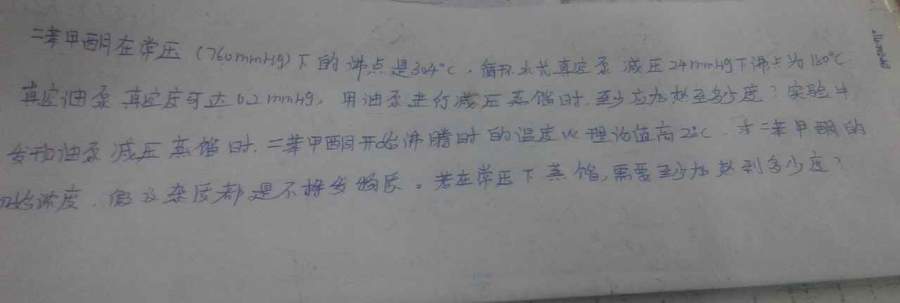 二苯甲酮在常压(760mmHg)下的沸点是304°C,循环水式真空泵减压24mmHg下沸点为180°C
真空油泵真空度可达0.2mmHg,用油泵进行减压蒸馏时,至少应加热至多少度?实验中
发现油泵减压蒸馏时,二苯甲酮开始沸腾时的温度比理论值高2°C,求二苯甲酮的
初始浓度,假设杂质都是不挥发物质。若在常压下蒸馏,需要至少加热到多少度?